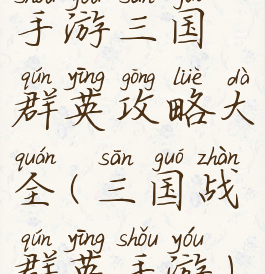 shǒu yóu sān guó
手游三国
qún yīng gōng lüè dà
群英攻略大
quán sān guó zhàn
全(三国战
qún yīng shǒu yóu
群英手游)